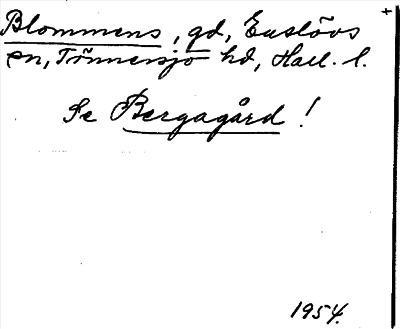 Blommens, gd, Enslövs
sn, Tönnersjö hd, Hall. l.
Se Bergagård!
1954.